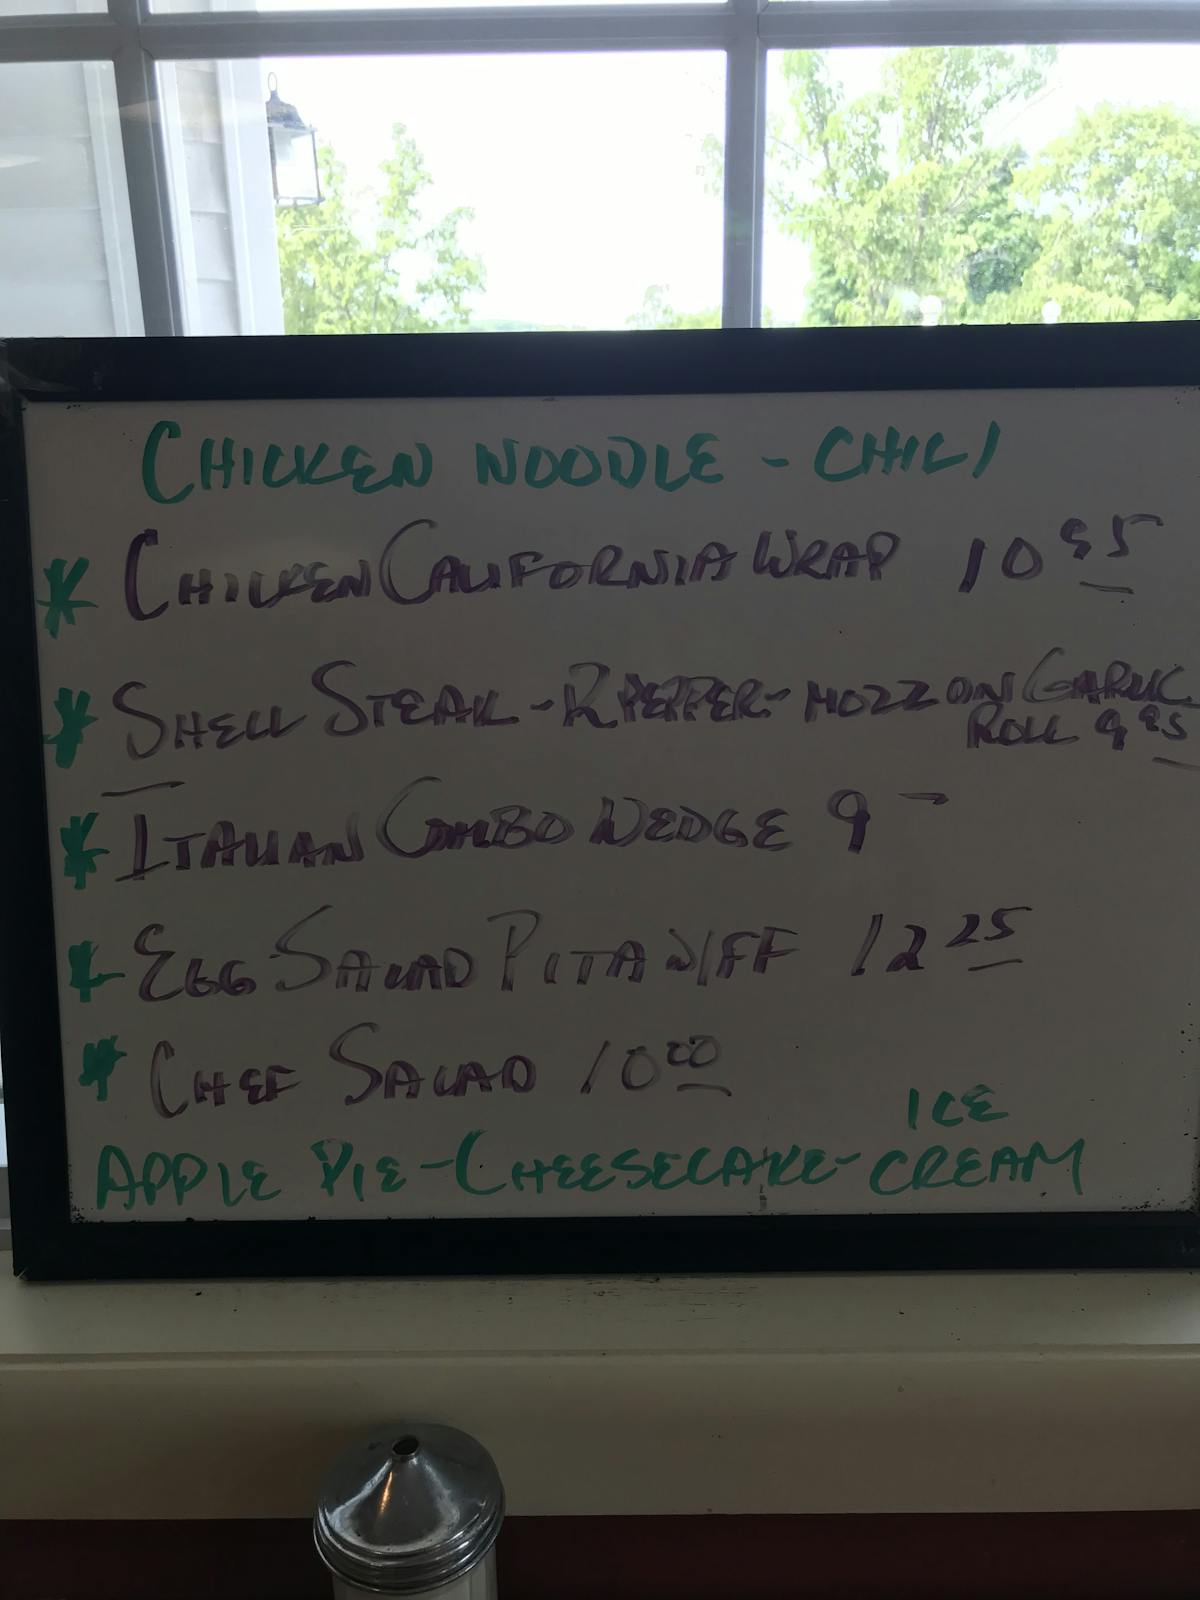 CHICKEN NOODLE - CHILI
* CHICKEN CALIFORNIA WRAP 10 95
* SHELL STEAK - R PEPPER - MOZZ ON GARLIC
ROLL 9 95
* ITALIAN COMBO WEDGE 9 -
* EGG SALAD PITA W/FF 12 25
* CHEF SALAD 10 00
ICE
APPLE PIE - CHEESECAKE - CREAM